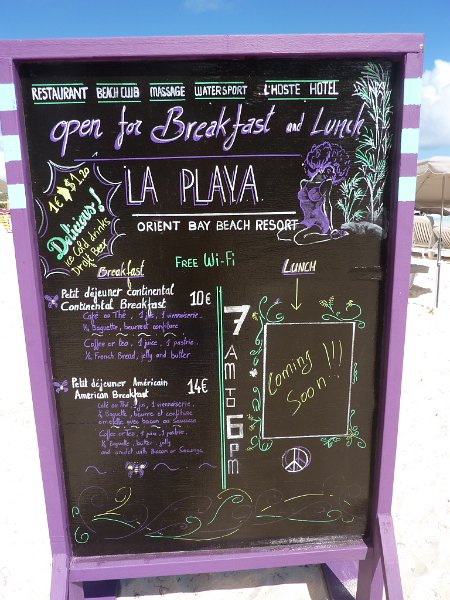 RESTAURANT BEACH CLUB MASSAGE WATERSPORT L'HOSTE HOTEL
open for Breakfast and Lunch
1€ $1.20
Delicious!
Ice Cold drinks
Draft Beer
LA PLAYA
ORIENT BAY BEACH RESORT
FREE Wi-Fi
Breakfast
Petit déjeuner continental 10€
Continental Breakfast
Café ou Thé, 1 jus, 1 viennoiserie.
½ Baguette, beurre et confiture
Coffee or tea, 1 juice, 1 pastrie.
½ French Bread, jelly and butter
Petit déjeuner Américain 14€
American Breakfast
Café ou Thé, 1 jus, 1 viennoiserie.
½ Baguette, beurre et confiture
omelette avec bacon ou Saucisse
Coffee or tea, 1 juice, 1 pastrie.
½ Baguette, butter, jelly
and omelet with Bacon or
7 AM TO 6 PM
LUNCH
Coming
Soon !!!